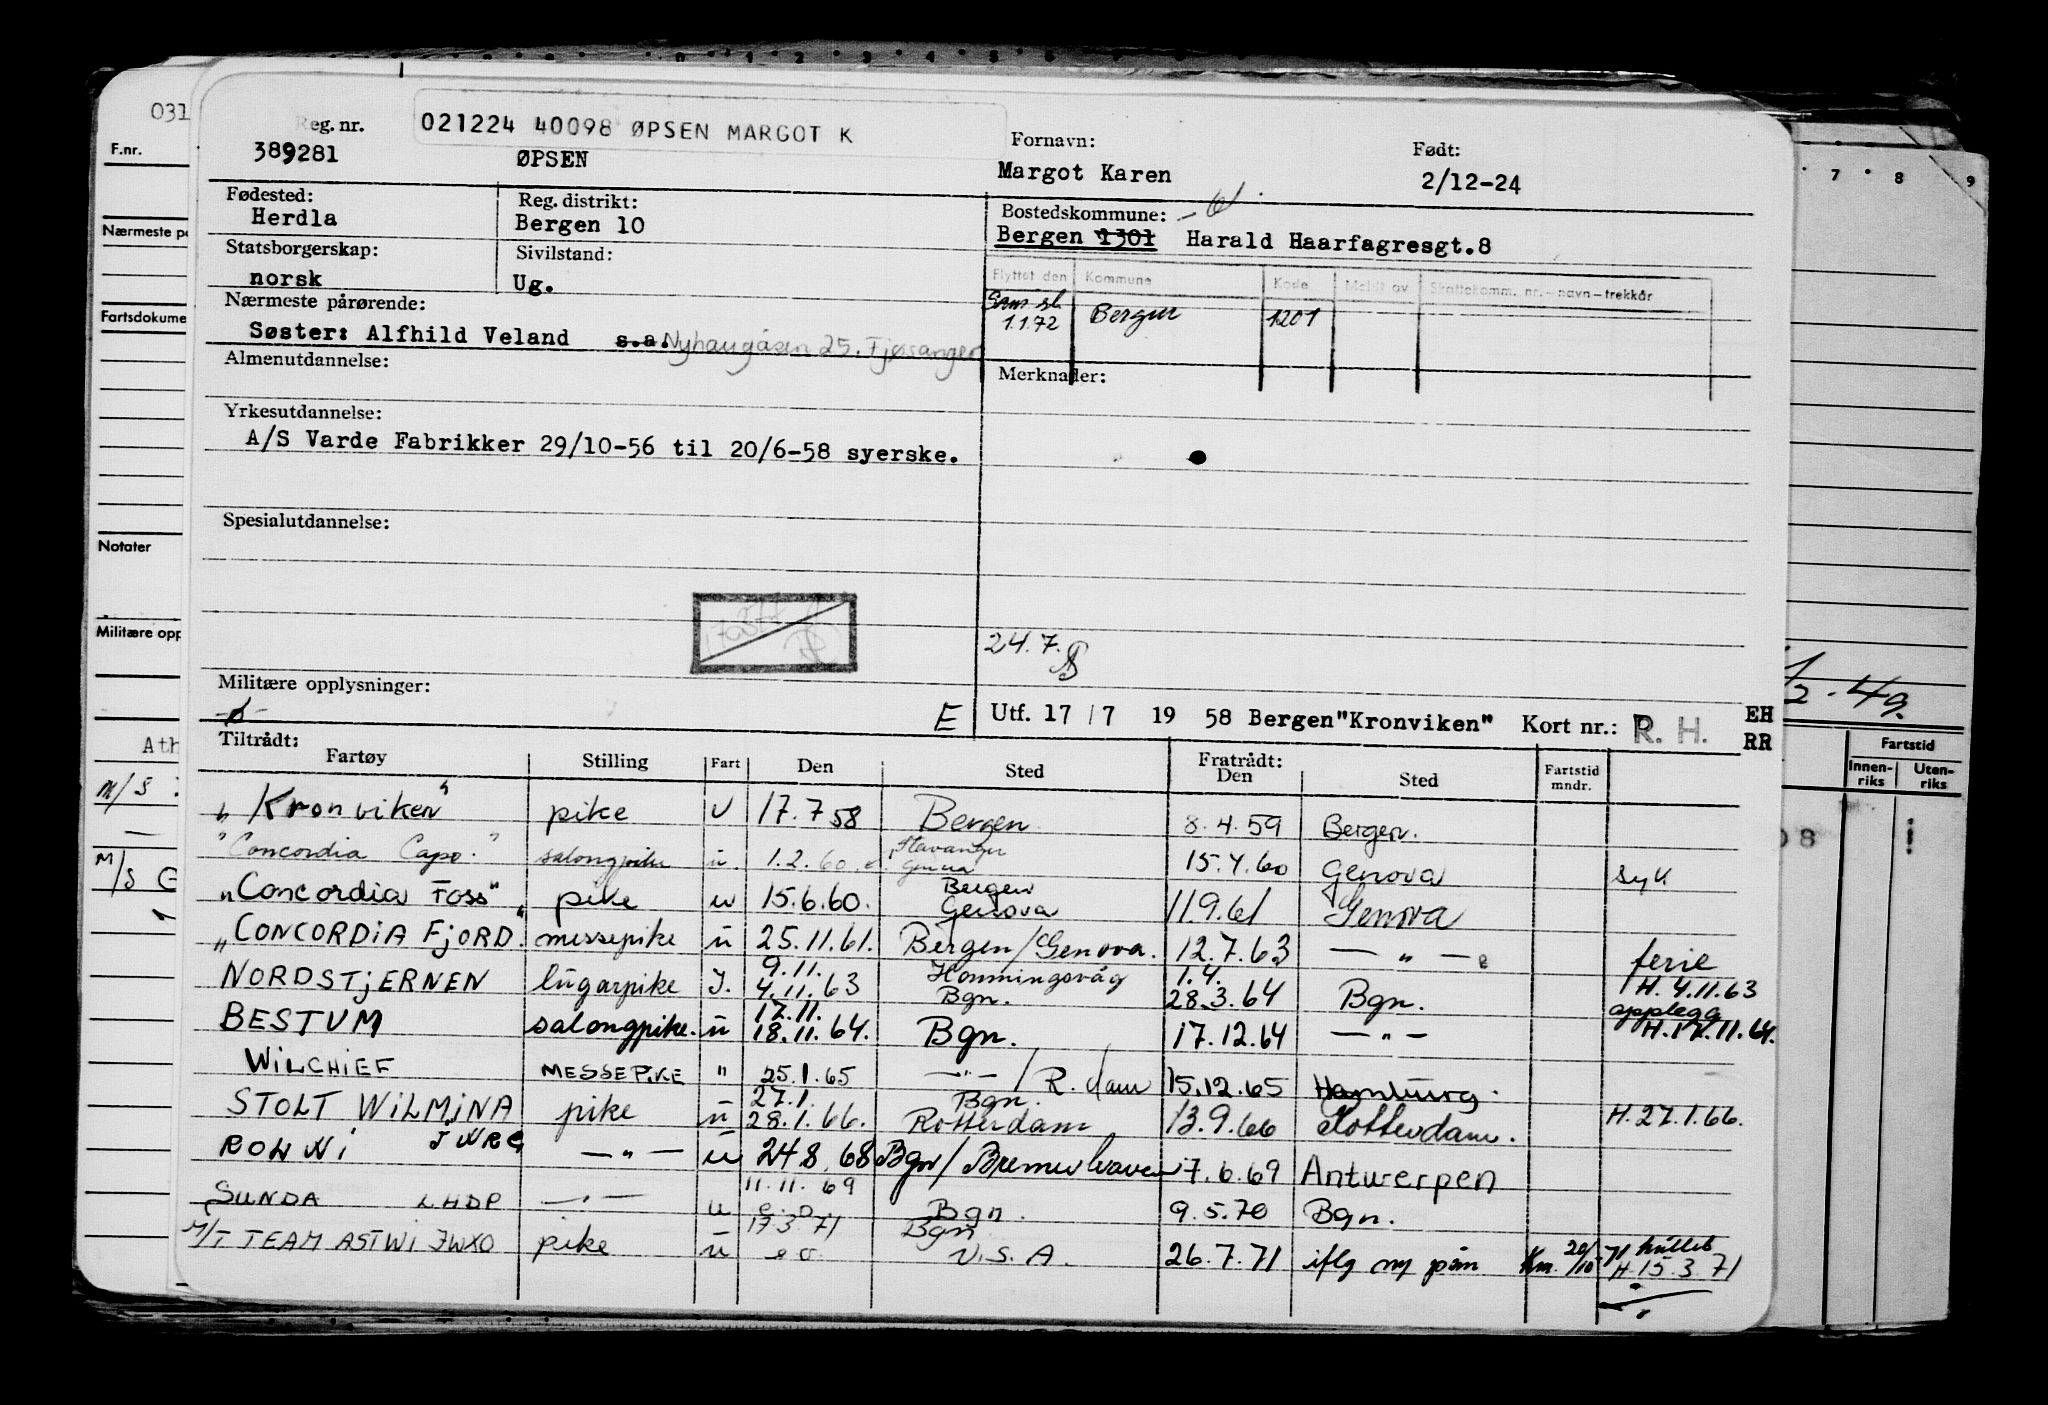 031
F.nr.
Nærmeste på
Fartsdokume
Notater
Militære opp
Ath
M/S
M/S G
Reg. nr. 021224 40098 ØPSEN MARGOT K Fornavn: Født:
389281 ØPSEN Margot Karen 2/12-24
Fødested: Reg. distrikt: Bostedskommune:
Herdla Bergen 10 Bergen 1301 Harald Haarfagresgt.8
Statsborgerskap: Sivilstand:
norsk Ug.
Flyttet den Kommune Kode Meldt av Skattekomm. nr. – navn – trekkår
1.1.72 Bergen 1201
Nærmeste pårørende:
Søster: Alfhild Veland s.a. Nyhaugåsen 25. Fjøsanger
Almenutdannelse: Merknader:
Yrkesutdannelse:
A/S Varde Fabrikker 29/10-56 til 20/6-58 syerske.
Spesialutdannelse:
24.7.
Militære opplysninger:
E Utf. 17/7 19 58 Bergen"Kronviken" Kort nr.: R. H. EH
RR
Tiltrådt: Fratrådt:
Fartøy Stilling Fart Den Sted Den Sted Fartstid mndr.
"Kronviken" pike u 17.7 58 Bergen 8.4.59 Bergen.
"Concordia Capo." salongpike u. 1.2.60 Stavanger Genua 15.4.60 Genova syk
"Concordia Foss" pike u 15.6.60. Bergen Genova 11.9.61 Genova
"CONCORDIA FJORD" messepike u 25.11.61. Bergen/Genova. 12.7.63 — " — ferie
NORDSTJERNEN lugarpike I. 9.11. 4.11.63 Honningsvåg Bgn. 1.4. 28.3.64 Bgn. H. 4.11.63 opplegg
BESTUM salongpike. u 17.11. 18.11.64. Bgn. 17.12.64 — " — H. 17.11.64.
WILCHIEF MESSEPIKE " 25.1.65 — " — / R.dam 15.12.65 Hamburg.
STOLT WILMINA pike u 27.1. 28.1.66. Bgn. Rotterdam 13.9.66 Rotterdam. H. 27.1.66.
RONWI JWRG — " — u 24.8.68 Bgn/Bremerhaven 7.6.69 Antwerpen
SUNDA LHDP — " — u 11.11.69 Bgn. 9.5.70 Bgn.
M/T TEAM ASTWI JWXO pike u 17.3.71 Bgn U.S.A. 26.7.71 iflg ny påm Km. 20/10-71 H. 15.3.71
7 8 9
1/2 - 49.
Fartstid
Innen-riks Uten-riks
08